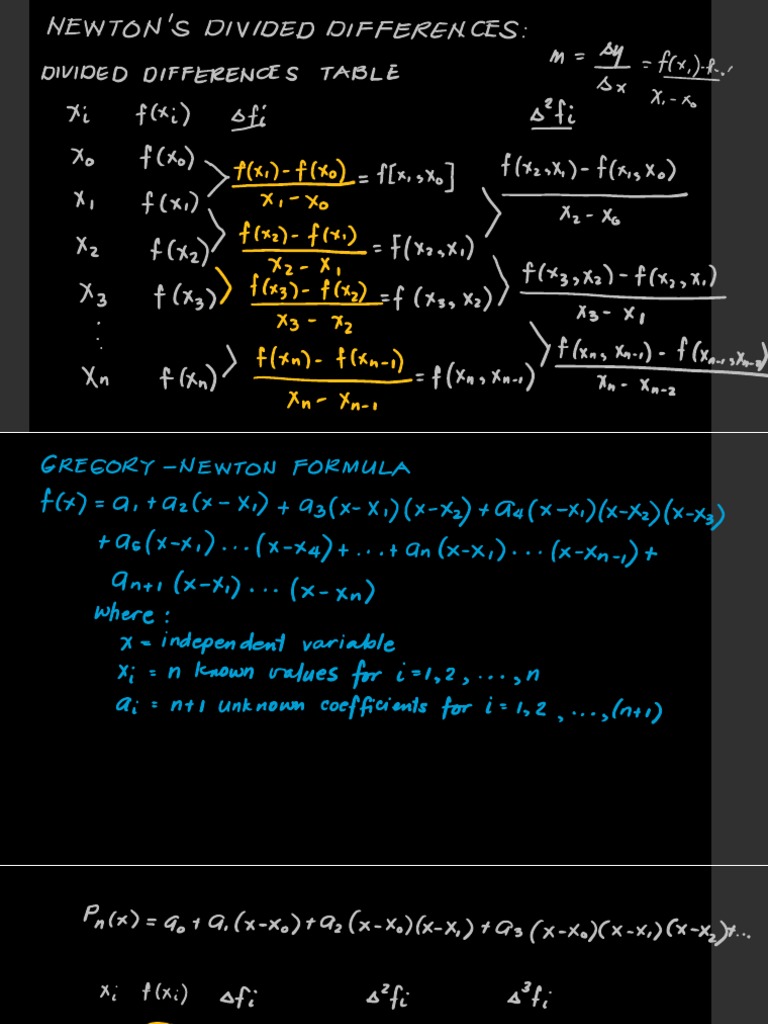 NEWTON'S DIVIDED DIFFERENCES:
m = Δy/Δx = f(x₁)-f.../x₁-x₀
DIVIDED DIFFERENCES TABLE
xi f(xi) Δfi Δ²fi
x₀ f(x₀)
(f(x₁)-f(x₀))/(x₁-x₀) = f[x₁,x₀] (f(x₂,x₁)-f(x₁,x₀))/(x₂-x₀)
x₁ f(x₁)
(f(x₂)-f(x₁))/(x₂-x₁) = f(x₂,x₁)
x₂ f(x₂)
(f(x₃)-f(x₂))/(x₃-x₂) = f(x₃,x₂) (f(x₃,x₂)-f(x₂,x₁))/(x₃-x₁)
x₃ f(x₃)
⋮
(f(xn)-f(xn-1))/(xn-xn-1) = f(xn,xn-1) (f(xn,xn-1)-f(xn-1,xn-2))/(xn-xn-2)
xn f(xn)
GREGORY-NEWTON FORMULA
f(x) = a₁+a₂(x-x₁)+a₃(x-x₁)(x-x₂)+a₄(x-x₁)(x-x₂)(x-x₃)
+a₅(x-x₁)...(x-x₄)+...+an(x-x₁)...(x-xn-1)+
an+1(x-x₁)...(x-xn)
where:
x = independent variable
xi = n known values for i=1,2,...,n
ai = n+1 unknown coefficients for i=1,2,...,(n+1)
Pn(x) = a₀+a₁(x-x₀)+a₂(x-x₀)(x-x₁)+a₃(x-x₀)(x-x₁)(x-x₂)+...
xi f(xi) Δfi Δ²fi Δ³fi